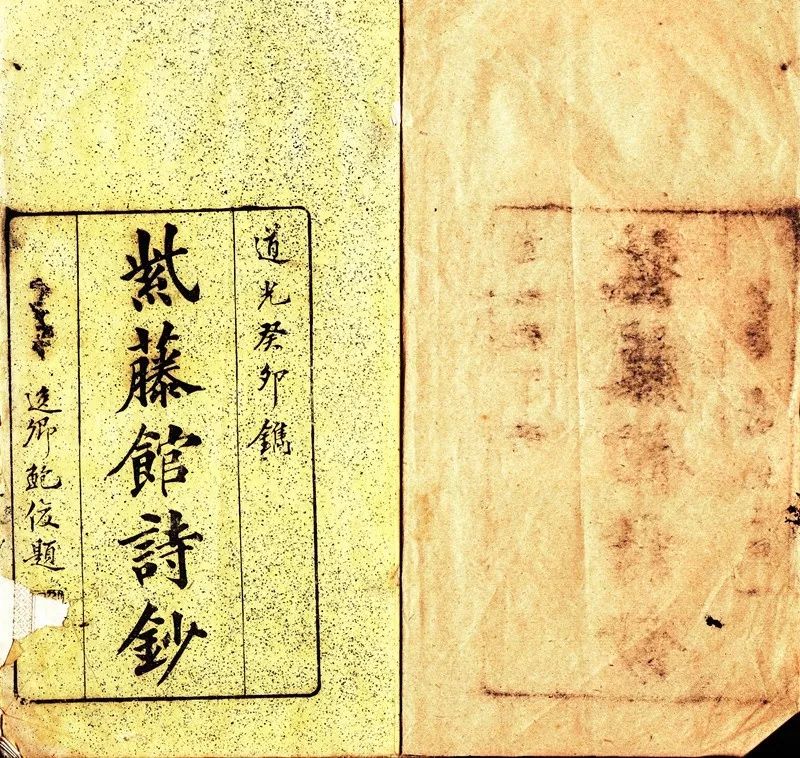 道光癸卯鐫
紫藤館詩鈔
逸卿鮑俊題